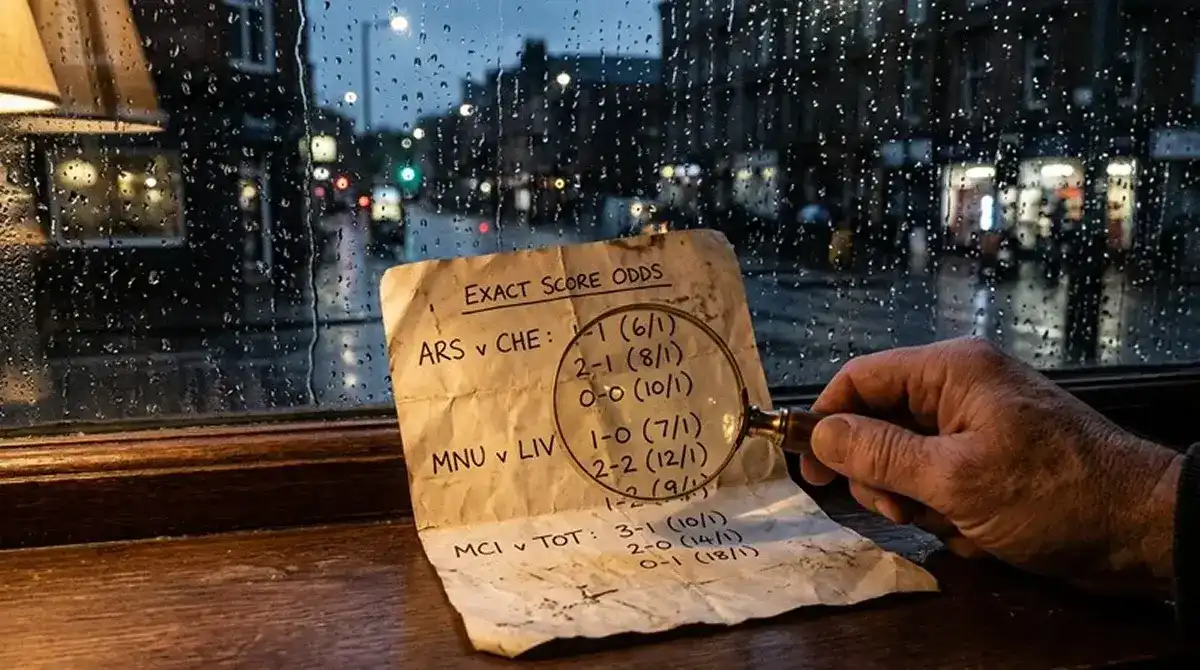 EXACT SCORE ODDS
ARS v CHE: 1-1 (6/1)
2-1 (8/1)
0-0 (10/1)
MNU v LIV 1-0 (7/1)
2-2 (12/1)
1-2 (9/1)
MCI v TOT: 3-1 (10/1)
2-0 (14/1)
0-1 (18/1)